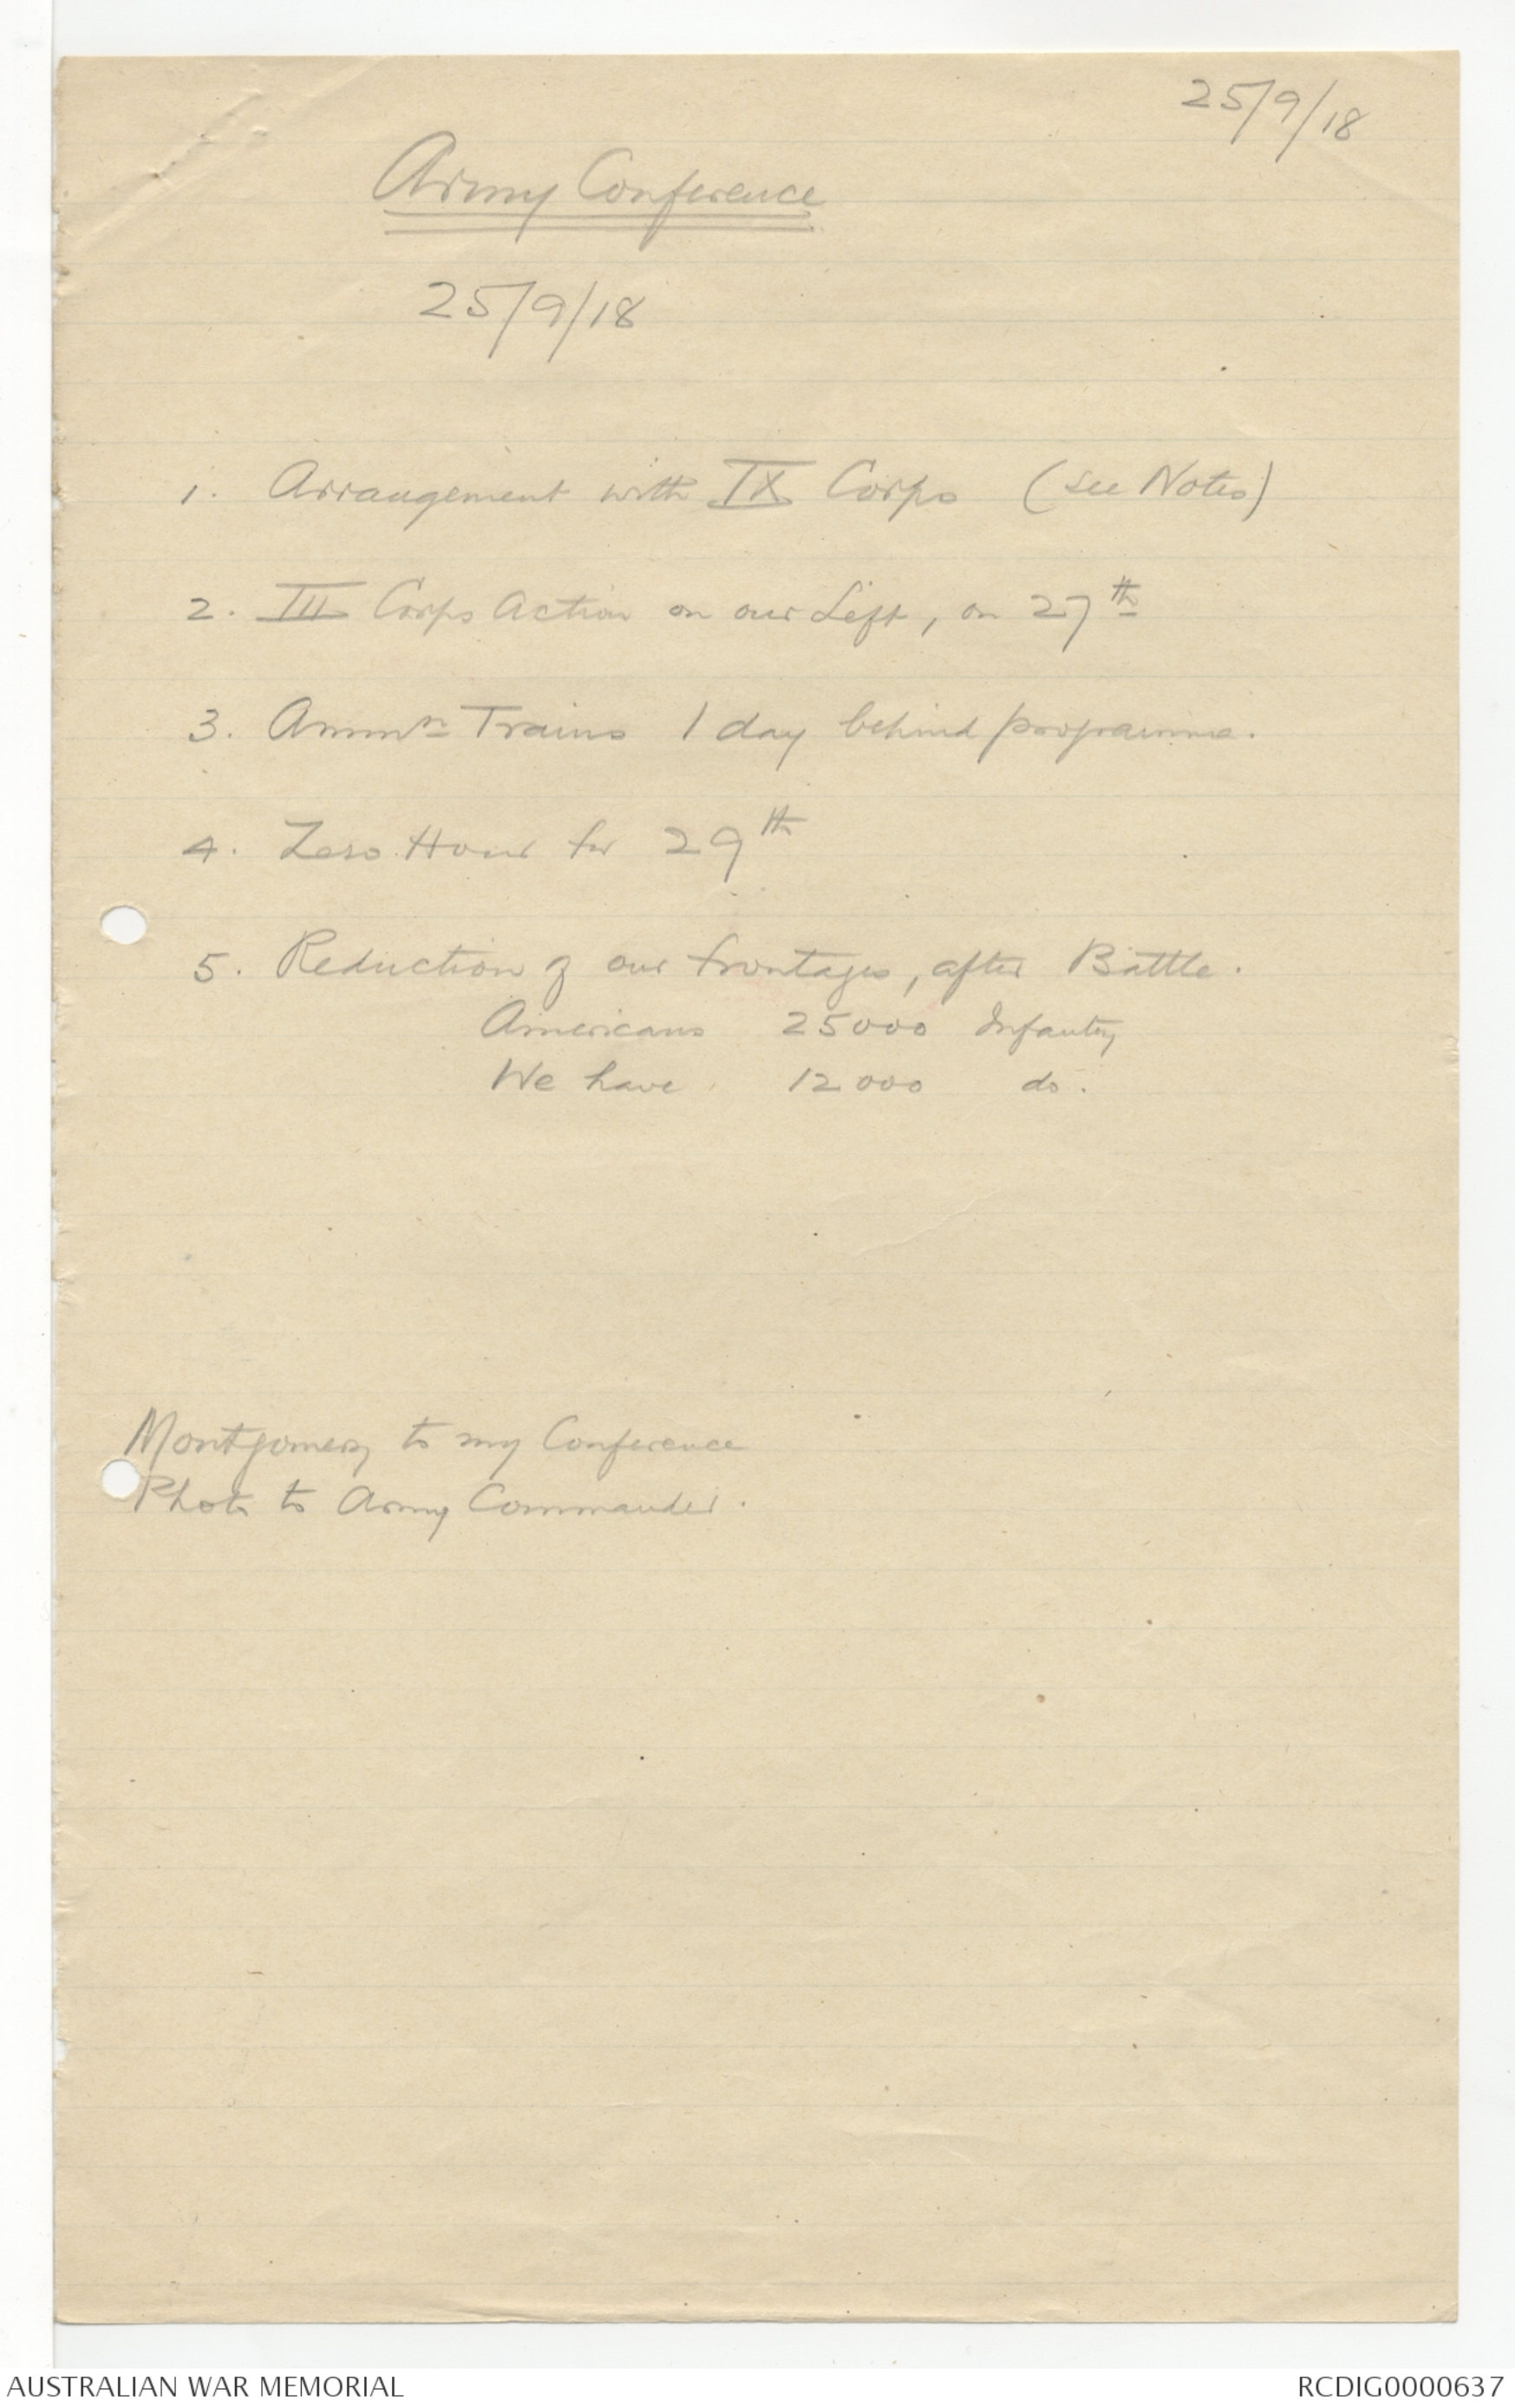 25/9/18
Army Conference
25/9/18
1. Arrangement with IX Corps (see Notes)
2. III Corps Action on our Left, on 27th
3. Ammn Trains 1 day behind programme.
4. Zero Hour for 29th
5. Reduction of our frontages, after Battle.
Americans 25000 Infantry
We have 12000 do.
Montgomery to my Conference
Photo to Army Commander.
AUSTRALIAN WAR MEMORIAL
RCDIG0000637